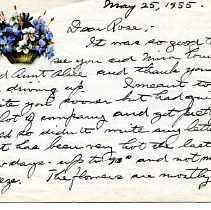 May 25, 1955.
Dear Rose; -
It was so good to
see you and
d Aunt Alice and thank you
driving up. I meant to
ite you sooner but had qui
lot of company and got
so didn't write any lett
t has been very hot the last
days - up to 90° and not m
eeze. The flowers are mostly